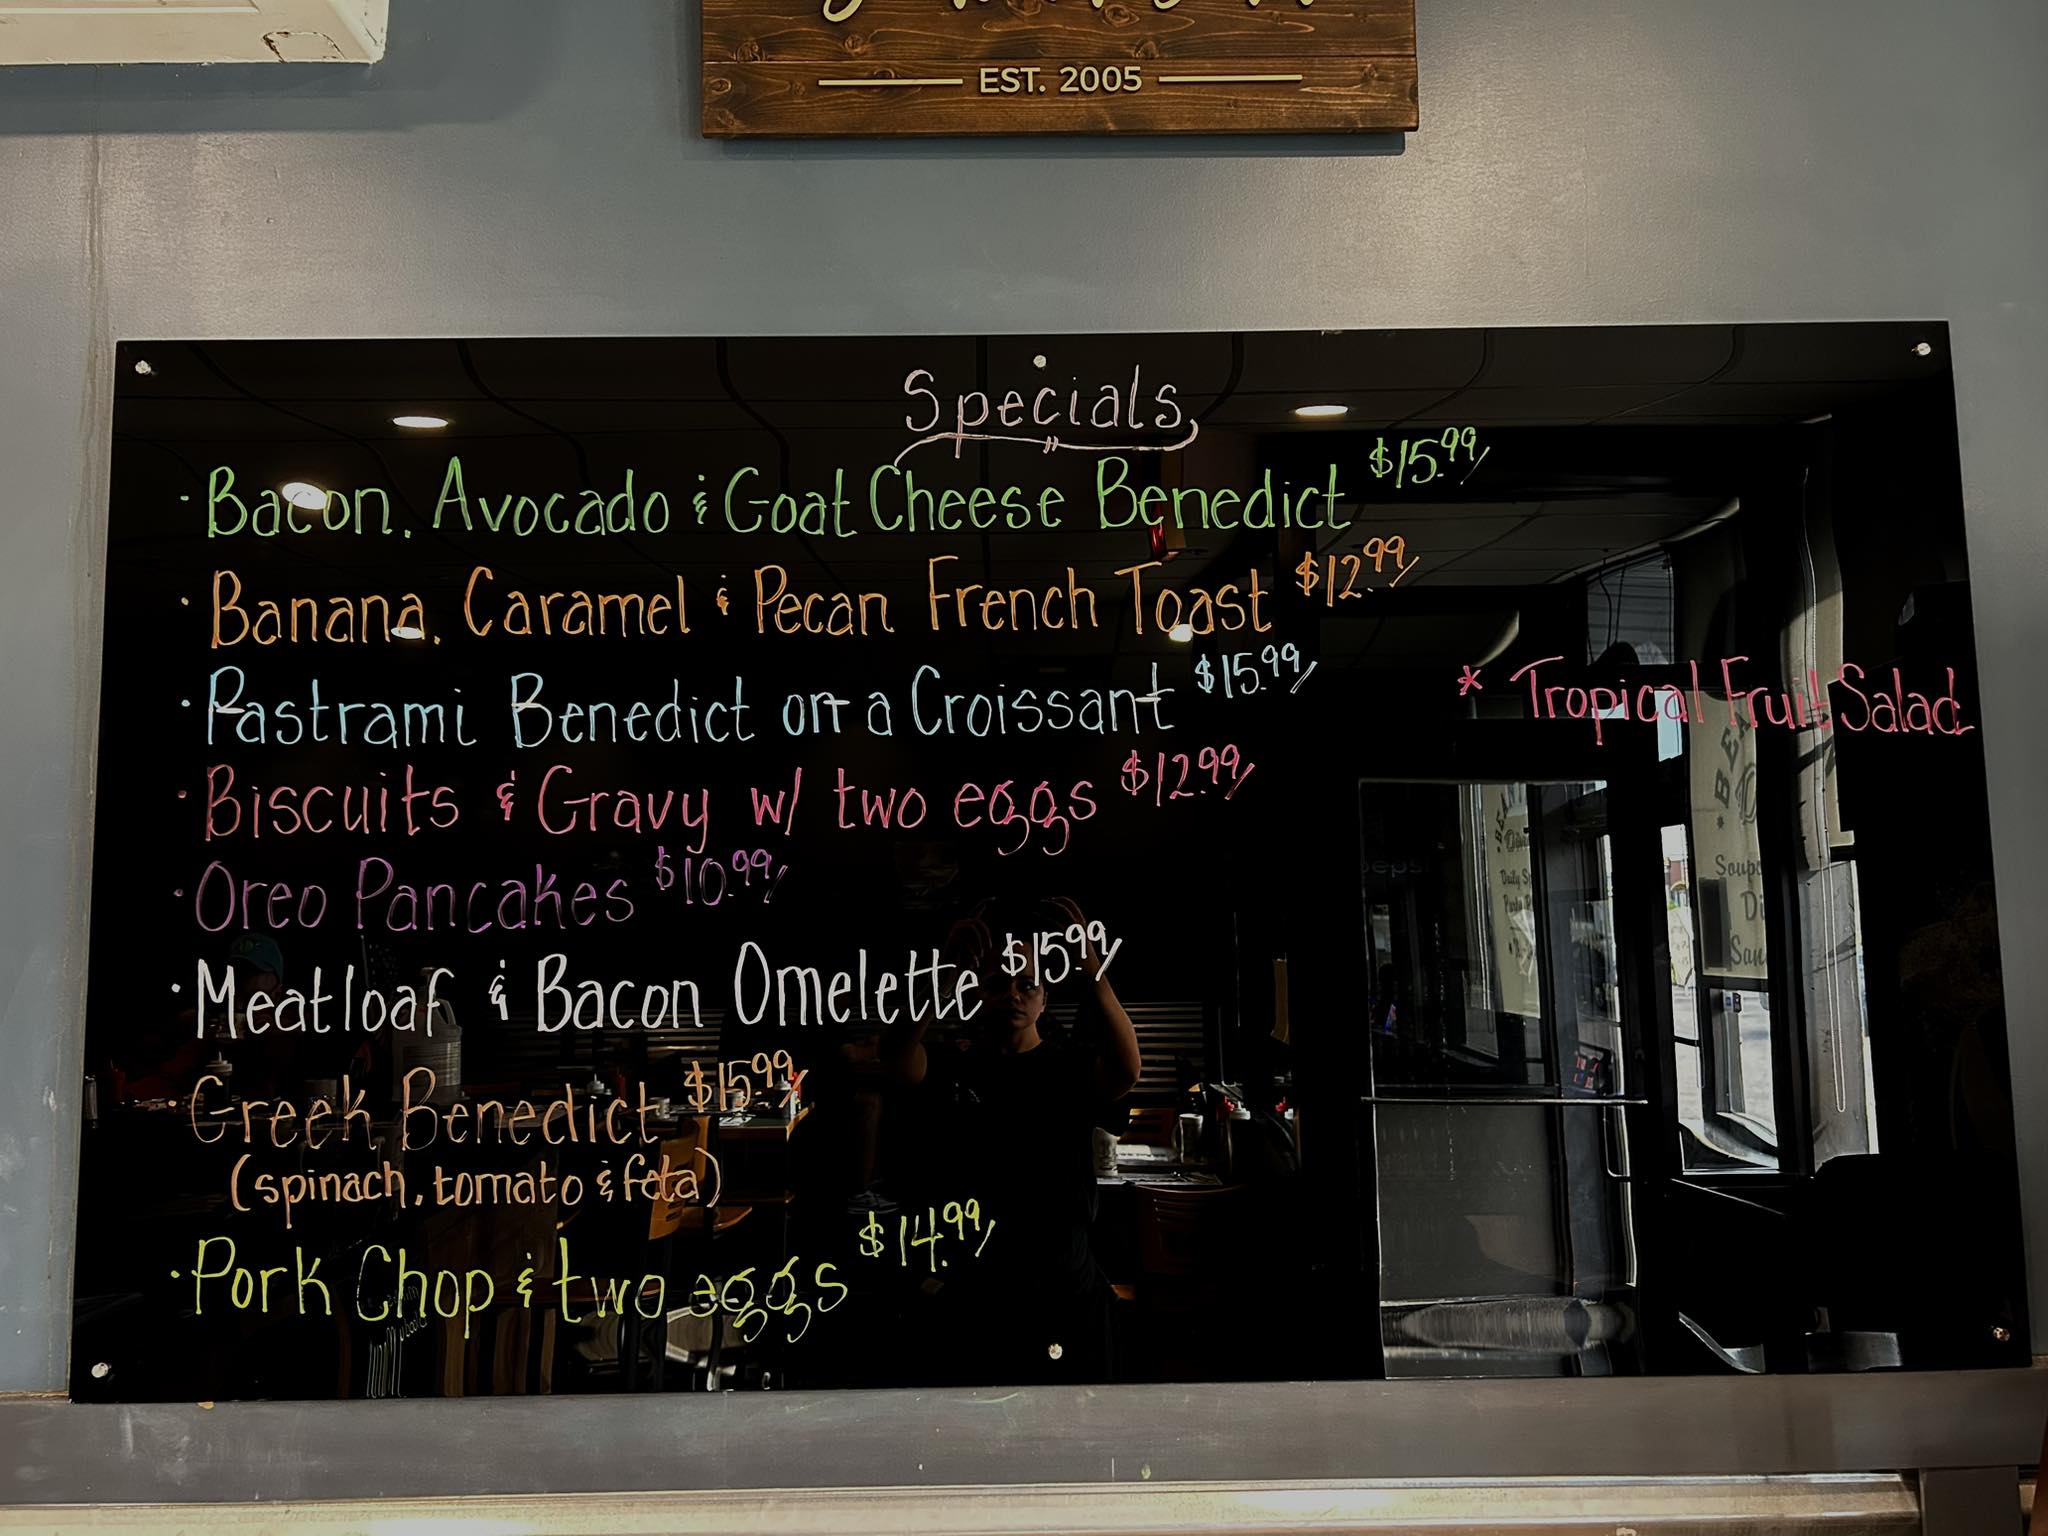 EST. 2005
Specials
· Bacon, Avocado & Goat Cheese Benedict $15.99
· Banana, Caramel & Pecan French Toast $12.99
· Pastrami Benedict on a Croissant $15.99
* Tropical Fruit Salad
· Biscuits & Gravy w/ two eggs $12.99
· Oreo Pancakes $10.99
· Meatloaf & Bacon Omelette $15.99
· Greek Benedict $15.99
(spinach, tomato & feta)
· Pork Chop & two eggs $14.99